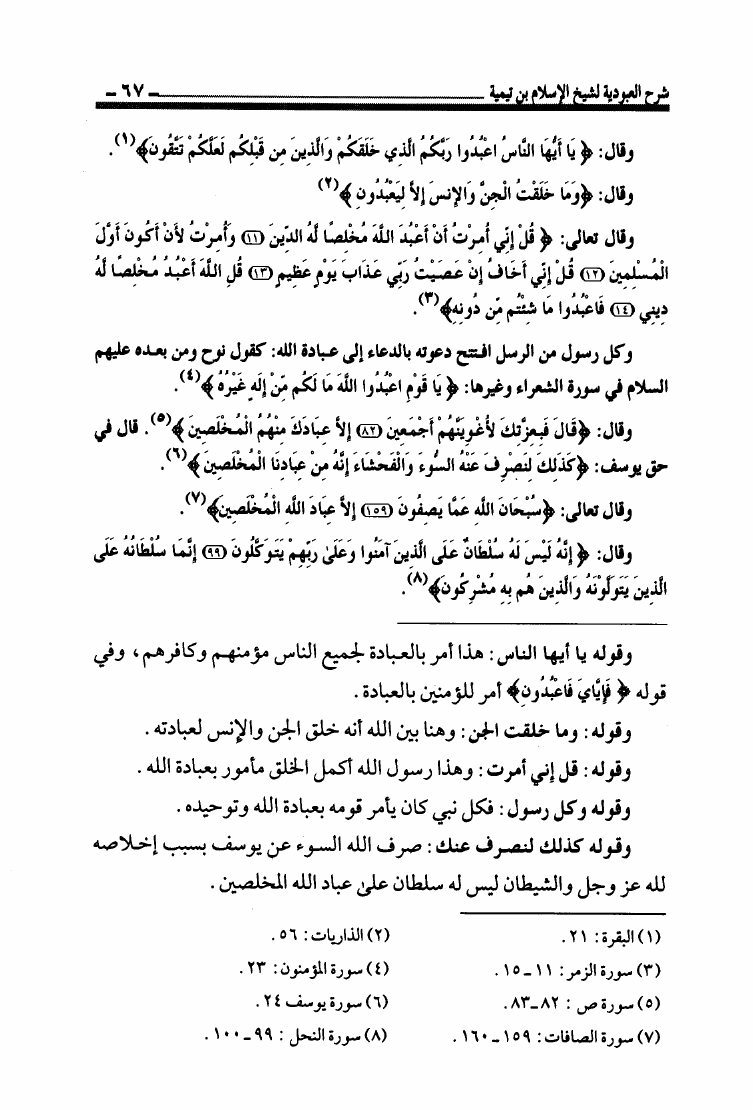 شرح العبودية لشيخ الإسلام بن تيمية ـ ٦٧ ـ
وقال: ﴿ يَا أَيُّهَا النَّاسُ اعْبُدُوا رَبَّكُمُ الَّذِي خَلَقَكُمْ وَالَّذِينَ مِن قَبْلِكُمْ لَعَلَّكُمْ تَتَّقُونَ﴾(١).
وقال: ﴿وَمَا خَلَقْتُ الْجِنَّ وَالإِنسَ إِلاَّ لِيَعْبُدُونِ ﴾(٢)
وقال تعالى: ﴿ قُلْ إِنِّي أُمِرْتُ أَنْ أَعْبُدَ اللَّهَ مُخْلِصًا لَّهُ الدِّينَ (١١) وَأُمِرْتُ لأَنْ أَكُونَ أَوَّلَ
الْمُسْلِمِينَ (١٢) قُلْ إِنِّي أَخَافُ إِنْ عَصَيْتُ رَبِّي عَذَابَ يَوْمٍ عَظِيمٍ (١٣) قُلِ اللَّهَ أَعْبُدُ مُخْلِصًا لَّهُ
دِينِي (١٤) فَاعْبُدُوا مَا شِئْتُم مِّن دُونِهِ﴾(٣).
وكل رسول من الرسل افتتح دعوته بالدعاء إلى عبادة الله: كقول نوح ومن بعده عليهم
السلام في سورة الشعراء وغيرها: ﴿ يَا قَوْمِ اعْبُدُوا اللَّهَ مَا لَكُم مِّنْ إِلَهٍ غَيْرُهُ ﴾(٤).
وقال: ﴿قَالَ فَبِعِزَّتِكَ لأُغْوِيَنَّهُمْ أَجْمَعِينَ (٨٢) إِلاَّ عِبَادَكَ مِنْهُمُ الْمُخْلَصِينَ ﴾(٥). قال في
حق يوسف: ﴿كَذَلِكَ لِنَصْرِفَ عَنْهُ السُّوءَ وَالْفَحْشَاءَ إِنَّهُ مِنْ عِبَادِنَا الْمُخْلَصِينَ ﴾(٦).
وقال تعالى: ﴿سُبْحَانَ اللَّهِ عَمَّا يَصِفُونَ (١٥٩) إِلاَّ عِبَادَ اللَّهِ الْمُخْلَصِينَ﴾(٧).
وقال: ﴿ إِنَّهُ لَيْسَ لَهُ سُلْطَانٌ عَلَى الَّذِينَ آمَنُوا وَعَلَىٰ رَبِّهِمْ يَتَوَكَّلُونَ (٩٩) إِنَّمَا سُلْطَانُهُ عَلَى
الَّذِينَ يَتَوَلَّوْنَهُ وَالَّذِينَ هُم بِهِ مُشْرِكُونَ﴾(٨).
وقوله يا أيها الناس: هذا أمر بالعبادة لجميع الناس مؤمنهم وكافرهم، وفي
قوله ﴿ فَإِيَّايَ فَاعْبُدُونِ﴾ أمر للمؤمنين بالعبادة.
وقوله: وما خلقت الجن: وهنا بين الله أنه خلق الجن والإنس لعبادته.
وقوله: قل إني أمرت: وهذا رسول الله أكمل الخلق مأمور بعبادة الله.
وقوله وكل رسول: فكل نبي كان يأمر قومه بعبادة الله وتوحيده.
وقوله كذلك لنصرف عنك: صرف الله السوء عن يوسف بسبب إخلاصه
لله عز وجل والشيطان ليس له سلطان علىٰ عباد الله المخلصين.
(١) البقرة: ٢١. (٢) الذاريات: ٥٦.
(٣) سورة الزمر: ١١ ـ ١٥. (٤) سورة المؤمنون: ٢٣.
(٥) سورة ص: ٨٢ ـ ٨٣. (٦) سورة يوسف ٢٤.
(٧) سورة الصافات: ١٥٩ ـ ١٦٠. (٨) سورة النحل: ٩٩ ـ ١٠٠.